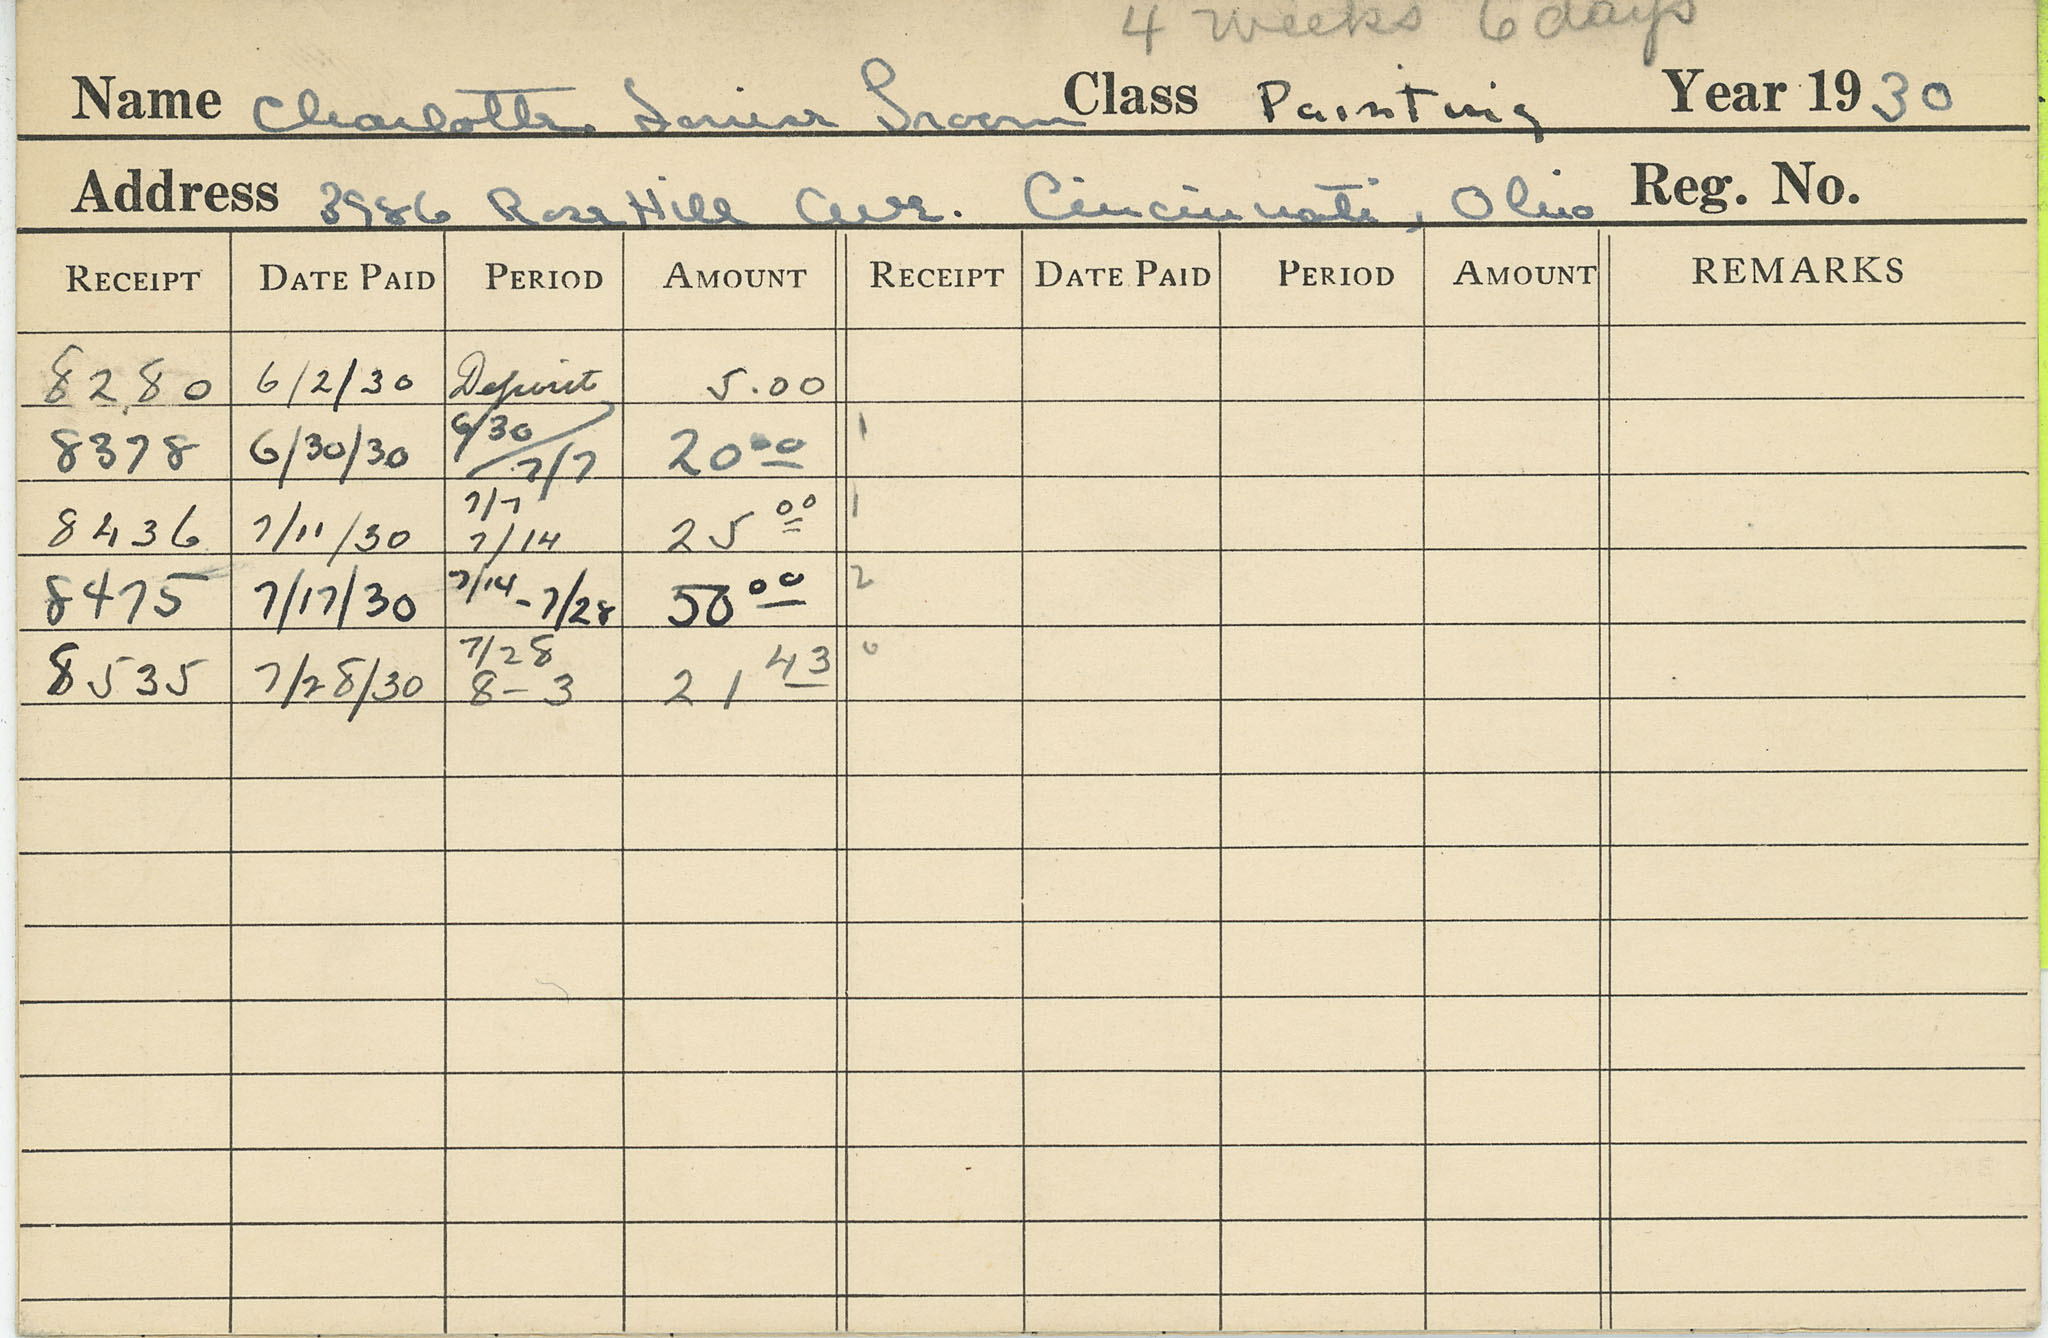 4 weeks 6 days
Name Charlotte Louise Groom Class Painting Year 1930
Address 3986 Rose Hill Ave. Cincinnati, Ohio Reg. No.
RECEIPT DATE PAID PERIOD AMOUNT RECEIPT DATE PAID PERIOD AMOUNT REMARKS
8280 6/2/30 Deposit 5.00
8378 6/30/30 6/30 / 7/7 20 00 1
8436 7/11/30 7/7 7/14 25 00 1
8475 7/17/30 7/14 - 7/28 50 00 2
8535 7/28/30 7/28 8-3 21 43